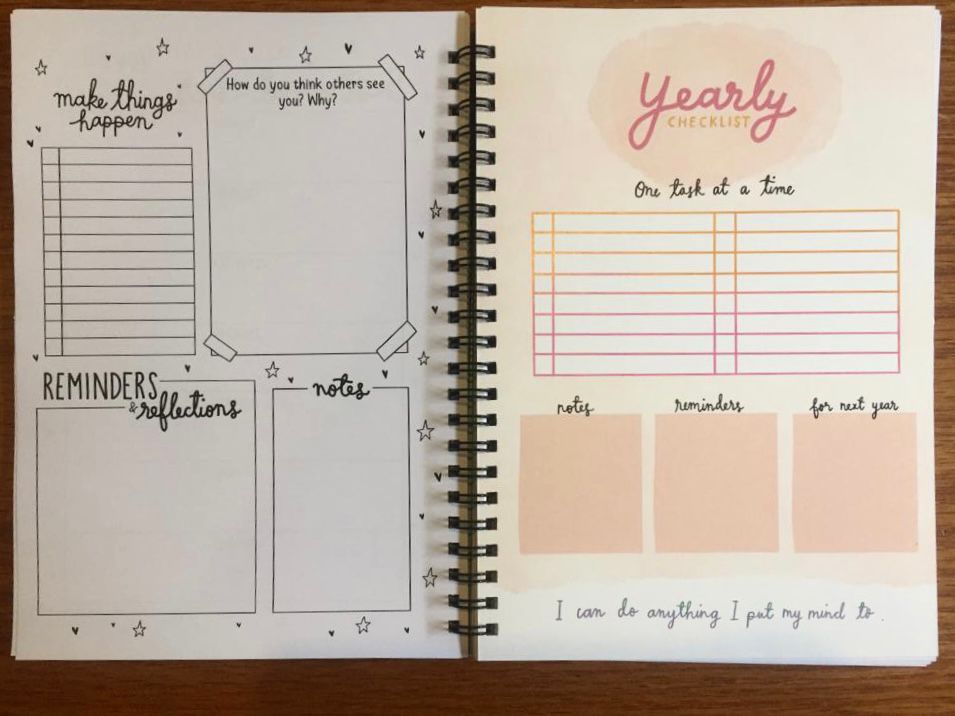 make things
happen
How do you think others see
you? Why?
REMINDERS
& reflections
notes
Yearly
CHECKLIST
One task at a time
notes
reminders
for next year
I can do anything I put my mind to.